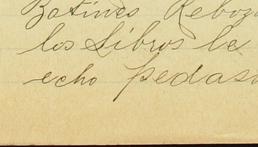 Botines Rebozo
los Libros le
echo pedaso